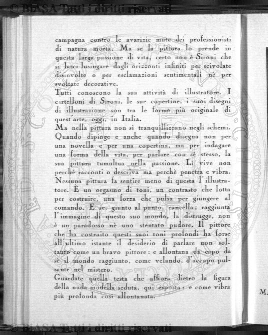 campagna contro le avarizie mute dei professionisti
di natura morta. Ma se la pittura la prende in
questa larga passione di vita, certo non è Sironi che
si lasci lusingare dagli orizzonti infiniti per scivolate
disinvolte o per esclamazioni sentimentali nè per
svolate decorative.
Tutti conoscono la sua attività di illustratore. I
cartelloni di Sironi, le sue copertine, i suoi disegni
di illustrazione son tra le forme più originali di
quest'arte, oggi, in Italia.
Ma nella pittura non si tranquillizzano negli schemi.
Quando dipinge e anche quando disegna non per
una novella e per una copertina, ma per indagare
una forma della vita, per parlare con sè stesso, la
sua pittura tumultua nella passione. Li vive non
perchè racconti o descriva ma perchè penetra e vibra.
Nessuna pittura fa sentire meno di questa l'illustra-
tore. È un orgasmo di toni, un contrasto che lotta
per costruire, una forza che pulsa per giungere al
comando. E se giunto al punto, cancella, raggiunta
l'immagine di questo suo mondo, la distrugge, non
è un paradosso nè uno stentato pudore. Il pittore
che ha costruito questi suoi toni profondi ha forse
all'ultimo istante il desiderio di parlare non sol-
tanto come un bravo pittore e allontana da capo di
sè il mondo raggiunto, come velando, d'occupo pul-
sante nel mistero.
Guardate quella testa che affiora dietro la figura
della nuda modella seduta, qui esposta: e come vibra
più profonda così allontanata.
M.